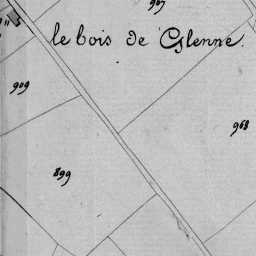 907
le bois de Glenne.
909
968
899